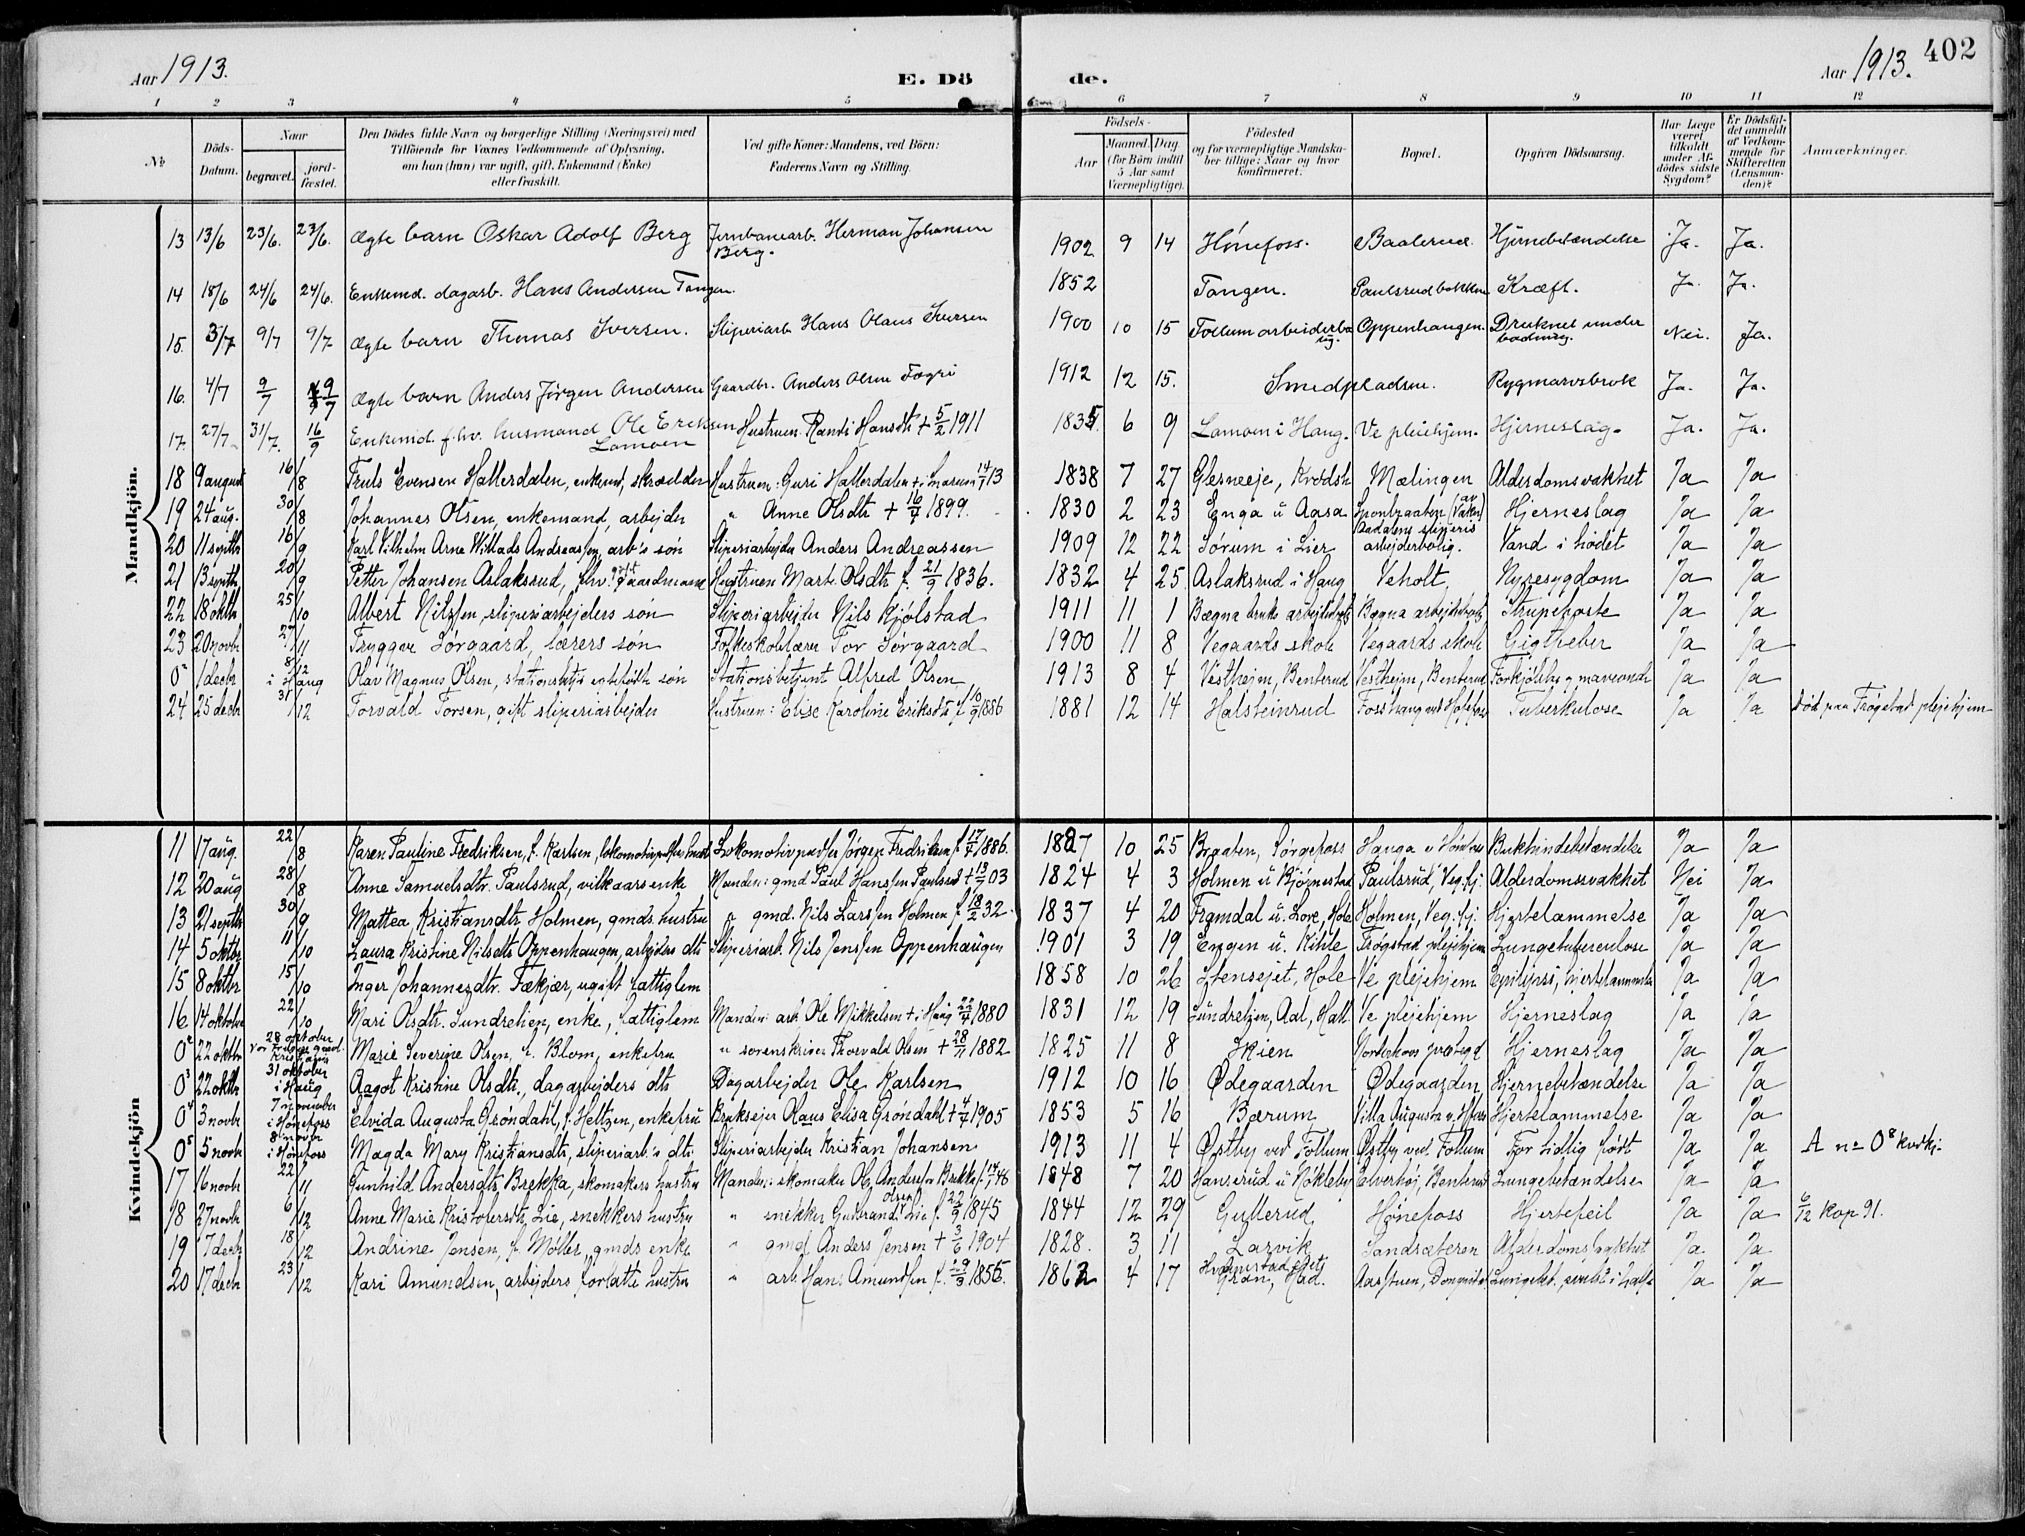 Aar 1913. E. Dö de. Aar 1913. 402
1 2 3 4 5 6 7 8 9 10 11 12
No Döds-Datum. Naar begravet. jord-fæstet. Den Dödes fulde Navn og borgerlige Stilling (Næringsvei) med Tilföiende for Voxnes Vedkommende af Oplysning, om han (hun) var ugift, gift, Enkemand (Enke) eller fraskilt. Ved gifte Koner: Mandens, ved Börn: Faderens Navn og Stilling. Födsels- Aar Maaned. Dag. (for Börn indtil 5 Aar samt Værnepligtige). Födested og for værnepligtige Mandska-ber tillige: Naar og hvor konfirmeret. Bopæl. Opgiven Dödsaarsag. Har Læge været tilkaldt under Af-dödes sidste Sygdom? Er Dödsfal-det anmeldt af Vedkom-mende for Skifteretten (Lensman-den)? Anmærkninger.
Mandkjön.
13 13/6 23/6. 23/6. Ægte barn Oskar Adolf Berg Jernbanearb. Herman Johansen Berg. 1902 9 14 Hönefoss. Baalerud. Hjernebetændelse Ja. Ja.
14 18/6 24/6 24/6. Enkemd. dagarb. Hans Andersen Tangen. 1852 Tangen. Paulsrudbakken Kræft. Ja. Ja.
15. 3/7 9/7 9/7 Ægte barn Thomas Iversen. Sliperiarb. Hans Olaus Iversen 1900 10 15 Follum arbeiderbolig. Oppenhaugen. Druknet under badning. Nei. Ja.
16. 4/7 9/7 9/7 Ægte barn Anders Jörgen Andersen Gaardbr. Anders Olsen 1912 12 15. Smedpladsen. Rygmarvsbrok Ja. Ja.
17. 27/7 31/7. 16/9 Enkemd. f.hv. husmand Ole Eriksen Lamoen Hustruen Randi Hansdt + 5/2 1911 1835 6 9 Lamoen i Haug. Ve pleiehjem. Hjerneslag. Ja. Ja.
18 9 august 16/8 Truls Evensen Hallerdalen, enkemd, skrædder Hustruen: Guri Hallerdalen + 14/7 13 1838 7 27 Glesneeje, Krödsh Mælingen Alderdomsvakhet Ja Ja
19 24 aug. 30/8 Johannes Olsen, enkemand, arbejder " Anne Olsdtr + 16/7 1899. 1830 2 23 Enga u Aasa Hjerneslag Ja Ja
20 11 septbr 16/9 Karl Vilhelm Arne Willads Andreassen, arb's søn Sliperiarbejder Anders Andreassen 1909 12 22 Sørum i Lier Aadalens sliperis arbejderbolig. Vand i hodet Ja Ja
21 13 septbr 20/9 Petter Johansen Aslaksrud, fhv. gift gaardmand Hustruen Mart. Olsdtr f. 21/9 1836. 1832 4 25 Aslaksrud i Haug Veholt, Nyresygdom Ja Ja
22 18 oktbr 25/10 Albert Nilssen, sliperiarbejders søn Sliperiarbejder Nils Kjølstad 1911 11 1 Bægna bruks arbejderbol. Bægna arbejderbolig Strupehoste Ja Ja
23 20 novbr 27/11 Tryggve Sørgaard, lærers søn Folkeskolelærer Tor Sørgaard 1900 11 8 Vegaards skole Vegaards skole Gigtfeber Ja Ja
0 1 decbr 8/12 i Haug Olav Magnus Olsen, stationsbetj's egtefødt søn Stationsbetjent Alfred Olsen 1913 8 4 Vestheim, Benterud Vestheim, Benterud Forkjølelse, maveonde Ja Ja
24 25 decbr 31/12 Torvald Torsen, gift sliperiarbejder Hustruen: Elise Karoline Eriksdtr f 10/9 1886 1881 12 14 Halsteinrud Fosshaug ved Hofsfoss Tuberkulose Ja Ja Død paa Frøgstad plejehjem
Kvindekjön
11 17 aug. 22/8 Karen Pauline Fredriksen, f. Karlsen, lokomotivpudsers hustru Lokomotivpudser Jørgen Fredriksen f. 17/7 1886. 1887 10 25 Braaten, Sørgefoss Hauga v Hønefoss Bukhindebetændelse Ja Ja
12 20 aug 28/8 Anne Samuelsdtr. Paulsrud, vilkaarsenke Manden: gmd Paul Hanssen Paulsrud + 13/7 03 1824 4 3 Holmen u Bjørnestad Paulsrud, Veg.fj. Alderdomssvakhet Nei Ja
13 21 septbr 30/9 Mattea Kristiansdtr Holmen, gmds. hustru " gmd. Nils Larssen Holmen f. 18/2 32. 1837 4 20 Framdal u. Lore, Hole Holmen, Veg.fj. Hjertelammelse Ja Ja
14 5 oktbr 11/10 Laura Kristine Nilsdtr Oppenhaugen, arbejders dtr Sliperiarb. Nils Jenssen Oppenhaugen 1901 3 19 Engen u. Kihle Frøgstad plejehjem Lungetuberculose Ja Ja
15 8 oktbr 15/10 Inger Johannesdtr. Fækjær, ugift fattiglem 1858 10 26 Stensejet, Hole Ve plejehjem Epilepsi, hjertelammelse Ja Ja
16 14 oktober 22/10 Mari Olsdtr. Sundrehjen, enke, fattiglem Manden: arb. Ole Mikkelsen + i Haug 22/7 1880 1831 12 19 Sundrehjen, Aal, Hall. Ve plejehjem Hjerneslag Ja Ja
0² 22 oktbr 28 oktober Vor Frelsers gravl. Kristiania Marie Severine Olsen, f. Blom, enkefru " sorenskriver Thorvald Olsen + 28/11 1882 1825 11 8 Skien Norderhovs prestegd Hjerneslag Ja Ja
0³ 22 oktbr 31 oktober i Haug Aagot Kristine Olsdtr, dagarbejders dtr Dagarbejder Ole Karlsen 1912 10 16 Ødegaarden Ødegaarden Hjernebetændelse Ja Ja
0⁴ 3 novbr 7 november i Hønefoss Elvida Augusta Grøndahl, f. Heltzen, enkefru Bruksejer Olaus Elisa Grøndahl + 4/7 1905 1853 5 16 Bærum Villa Augusta v. Hfoss Hjertelammelse Ja Ja
0⁵ 5 novbr 8 novbr i Hønefoss Magda Mary Kristiansdtr, sliperiarb.'s dtr Sliperiarbejder Kristian Johansen 1913 11 4 Østby ved Follum Østby ved Follum For tidlig født Ja Ja A no 0⁸ kvdkj.
17 16 novbr 22/11 Gunhild Andersdtr Brekka, skomakers hustru Manden: skomaker Ole Anderssen Brekka f. 14/1 46 1848 7 20 Hanserud u Nøkleby Elverhøj, Benterud Lungebetændelse Ja Ja
18 27 novbr 6/12 Anne Marie Kristofersdtr, Lie, snekkers hustru " snekker Gulbrand Olsen Lie f. 22/9 1845 1844 12 29 Gullerud Hønefoss Hjertefeil Ja Ja 6/12 kop 91.
19 7 decbr 18/12 Andrine Jensen, f. Møller, gmds enke " gmd. Anders Jensen + 3/6 1904 1828. 3 11 Larvik Sandræteren Alderdomssvakhet Ja Ja
20 17 decbr 23/12 Kari Amundsen, arbejders forlatte hustru " arb. Hans Amundsen f. 29/3 1855. 1862 4 17 Gran, Had. Aasstuen, Lungebet. Ja Ja